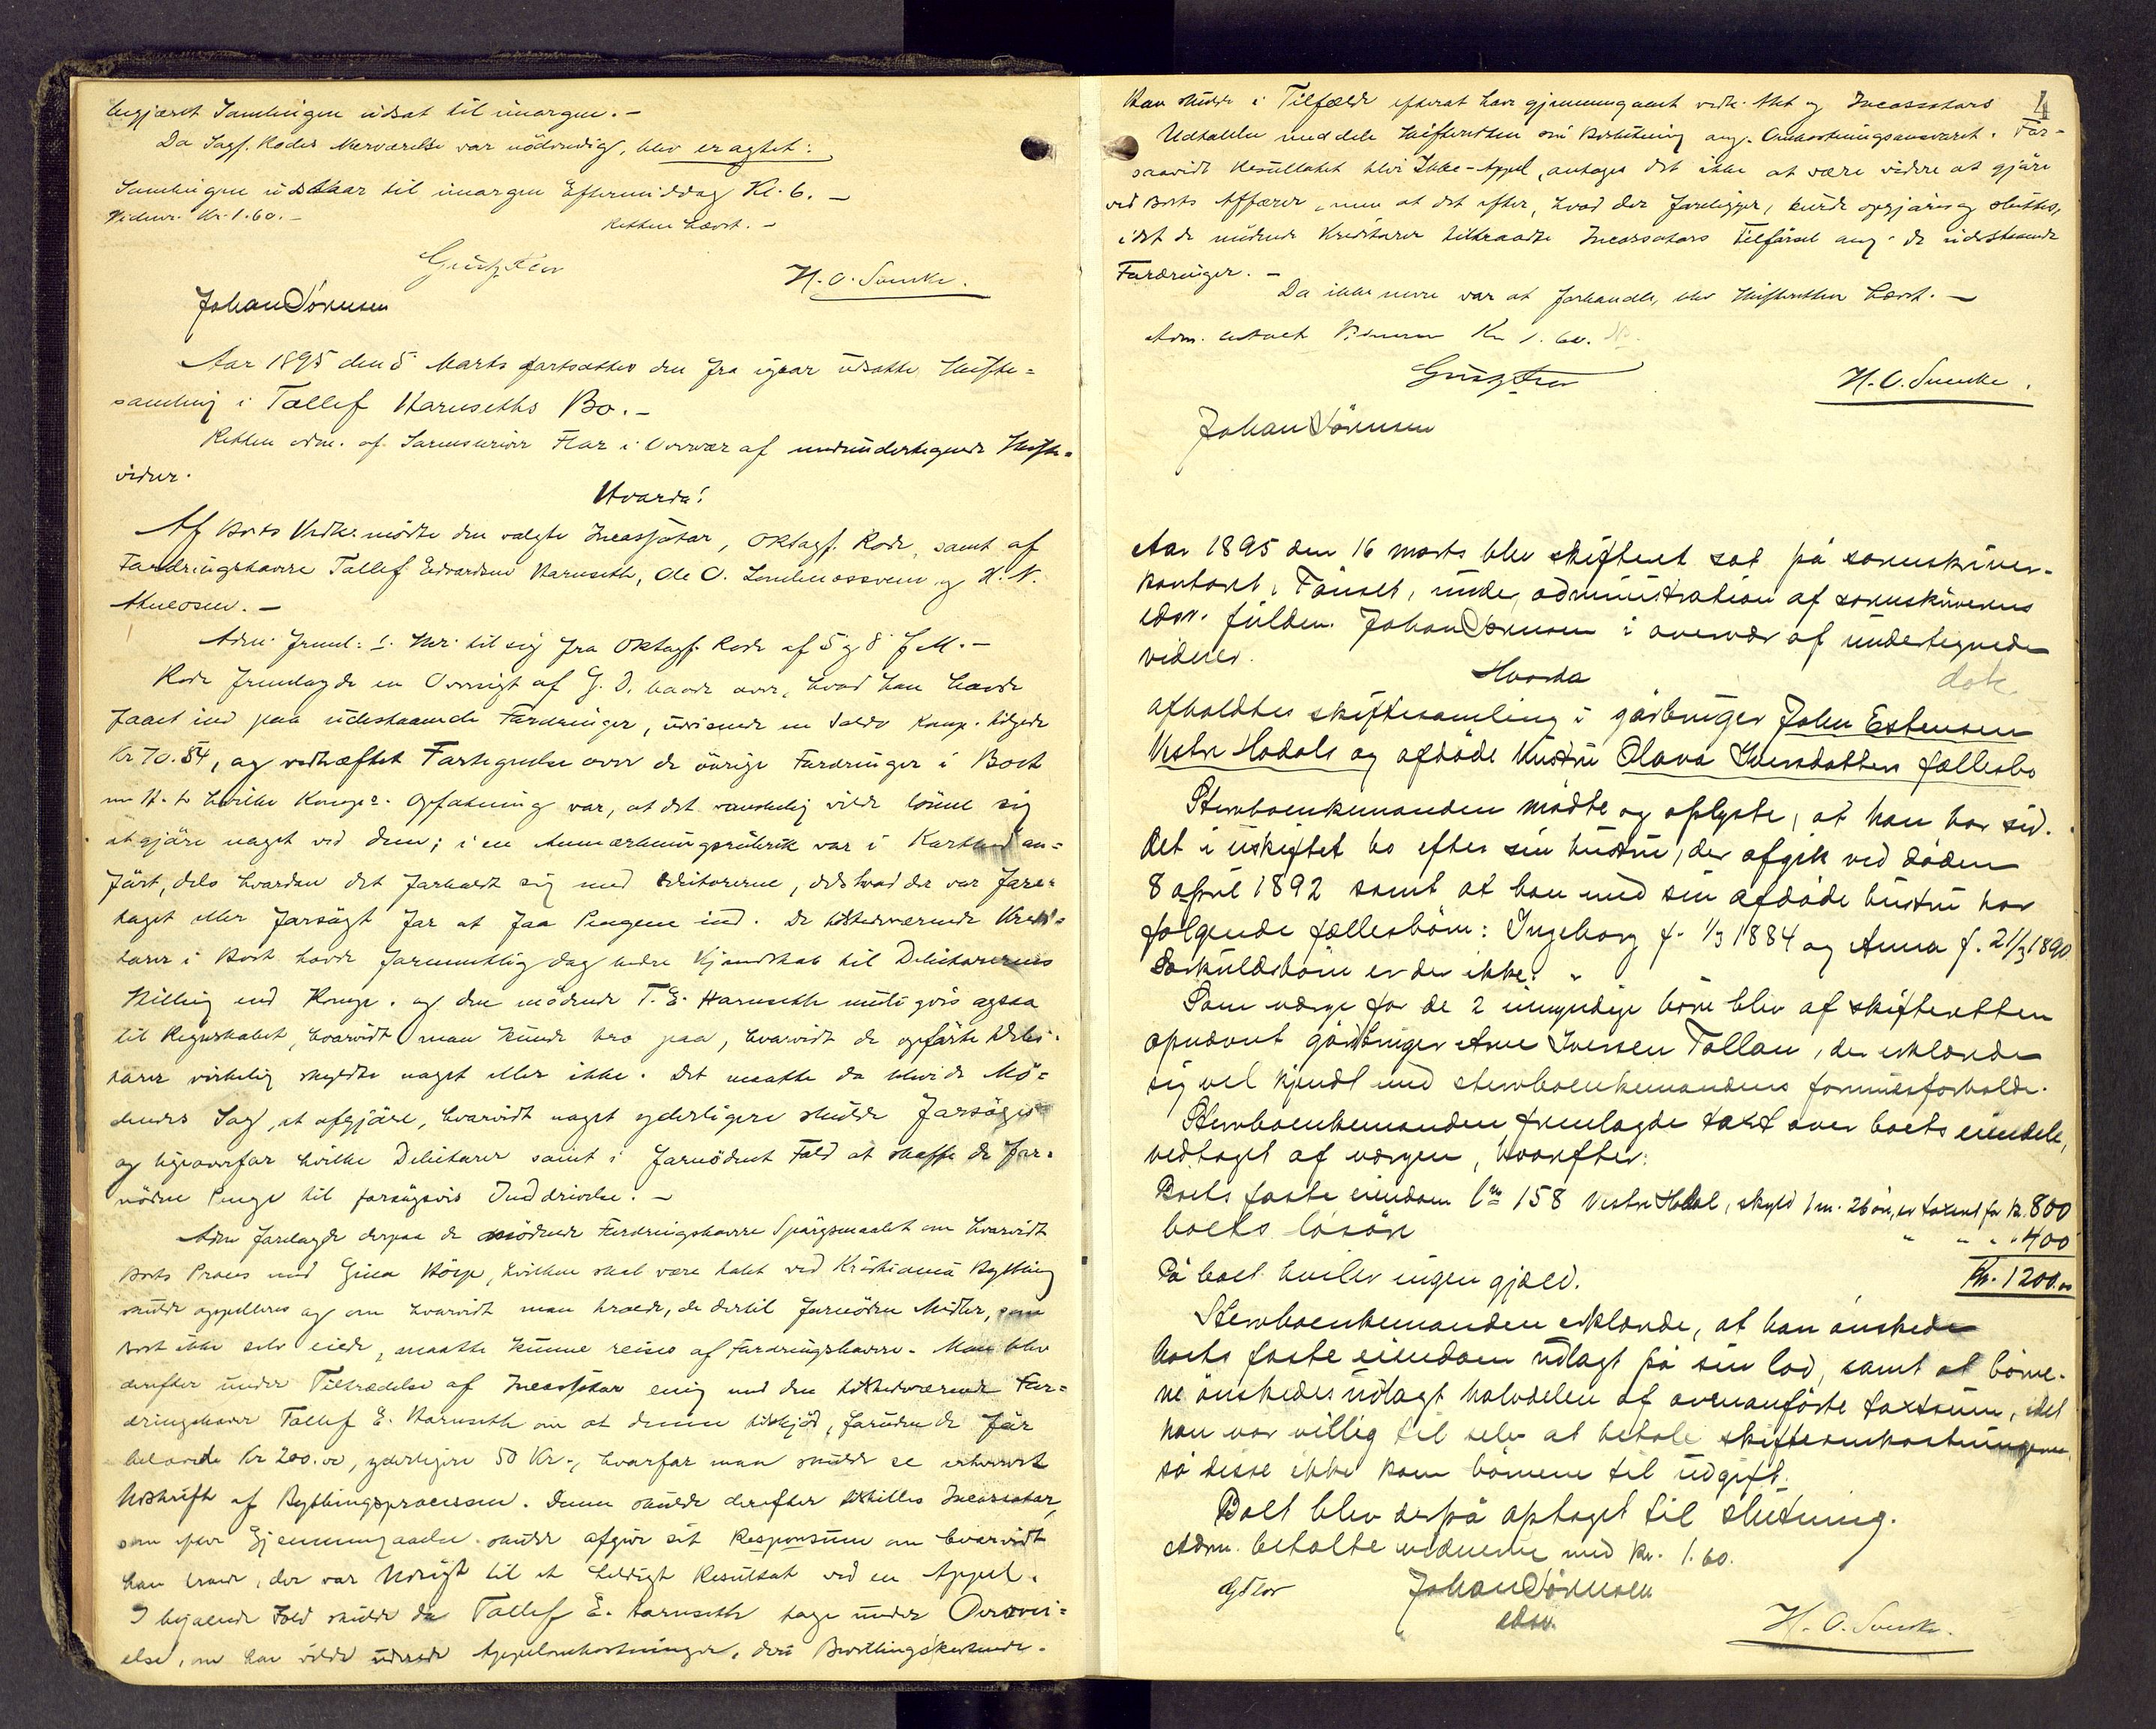 begjæret Samlingen udsat til imorgen. -
Da Sagf. Rodes Nærværelse var nödvendig, blev eragtet:
Samlingen udstaar til imorgen Eftermiddag Kl. 6. -
Vidner. Kr. 1.60. -
Retten hævet. -
H. O. Svenke.
Johan Sörensen
Aar 1895 den 5 Marts fortsattes den fra igaar udsatte Skifte=
samling i Tollef Harseths Bo. -
Retten adm. af Sorenskriver Flor i Overvær af medundertegnede Skifte=
vidner.
Hvorda:
Af Boets Vedk. mödte den valgte Incassator, Oktagf. Rode, samt af
Fordringshavere Tollef Edvardsen Harseth, Ole O. og H. N.
Adm. freml. 1. til sig fra Oktagf. Rode af 5 og 8 f. M. -
Rode fremlagde en Oversigt af G. D. baade over, hvad han havde
faaet ind paa udestaaende Fordringer, udvisende en Saldo Komp. tilgode
Kr 70.54, og vedhæftet Fortegnelse over de övrige Fordringer i Boet
om hvilke Komp. Opfatning var, at det vanskelig vilde lönne sig
at gjöre noget ved dem; i en Anmærkningsrubrik var i Korthed an=
fört, dels hvordan det forholdt sig med Debitorerne, dels hvad der var fore=
taget eller forsögt for at faa Pengene ind. De tilstedeværende Kredi=
torer i Boet havde formentlig dog bedre Kjendskab til Debitorernes
Stilling end Komp. og den mödende T. E. Harseth muligvis ogsaa
til Regnskabet, hvorvidt man kunde tro paa, hvorvidt de opförte Debi=
torer virkelig skyldte noget eller ikke. Det maatte da blive de Mö=
dendes Sag, at afgjöre, hvorvidt noget yderligere skulde forsöges
og ligeoverfor hvilke Debitorer samt i fornödent Fald at skaffe de for=
nödne Penge til forsögsvis Inddrivelse. -
Adm forelagde derpaa de mödende Fordringshavere Spörgsmaalet om hvorvidt
Boets Proces med Gina, hvilken skal være tabt ved Kristiania Bything
skulde appelleres og om hvorvidt man troede, de dertil fornödne Midler, som
Boet ikke selv eiede, maatte kunne reises af Fordringshavere. Man blev
derefter under Tiltrædelse af Incassator enig med den tilstedeværende For=
dringshaver Tollef E. Harseth om at denne tilskjöd, foruden de för
belovede Kr 200.00, yderligere 50 Kr., hvorfor man skulde se erhvervet
Udskrift af Bythingsprocessen. Denne skulde derefter tilstilles Incassator,
som efter Gjennemgaaelse skulde afgive sit Responsum om hvorvidt
han troede, der var Udsigt til et heldigt Resultat ved en Appel.
I bejaende Fald skulde da Tollef E. Harseth tage under Overvei=
else, om han vilde udrede Appelomkostninger, den Bevillingsökende.
4
Han skulde i Tilfælde efterat have gjennemgaaet vedk. Akt og Incassators
Udtalelse meddele Skifteretten sin Beslutning ang. Omkostningsansvaret. For=
saavidt Resultatet blev Ikke-Appel, antoges det ikke at være videre at gjöre
ved Boets Affærer, men at det efter, hvad der foreligger, burde opgjöres og sluttes,
idet de mödende Kreditorer tiltraadte Incassators Tilförsel ang. de udestaaende
Fordringer. -
Da ikke mere var at forhandle, blev Skifteretten hævet. -
Adm. betalte Vidnerne Kr 1.60.
H. O. Svenke.
Johan Sörensen
Aar 1895 den 16 marts blev skifteret sat på sorenskriver-
kontoret, Tönset, under administration af sorenskriverens
edsv. fuldm. Johan Sörensen i overvær af undertegnede
vidner.
Hvorda
dok.
afholdtes skiftesamling i gårbruger John Estensen
Vestre Hodals og afdöde hustru Olava Iversdatters fællesbo
Stervboenkemanden mödte og oplyste, at han har sid-
det i uskiftet bo efter sin hustru, der afgik ved döden
8 april 1892 samt at han med sin afdöde hustru har
fölgende fællesbörn: Ingeborg f. 1/3 1884 og Anna f. 21/3 1890
Særkuldsbörn er der ikke.
Som værge for de 2 umyndige börn blev af skifteretten
opnævnt gårbruger Arne Iversen Tollan, der erklærede
sig vel kjendt med stervboenkemandens formuesforholde.
Stervboenkemanden fremlagde taxt over boets eiendele,
vedtaget af værgen, hvorefter:
Boets faste eiendom lno 158 Vestre Hodal, skyld 1 m. 26 ör, er taxeret for kr. 800
boets lösöre " " " 400
På boet hviler ingen gjæld. Kr. 1200.00
Stervboenkemanden erklærede, at han önskede
boets faste eiendom udlagt på sin lod, samt at börne-
ne önskedes udlagt halvdelen af ovenanförte taxtsum, idet
han var villig til selv at betale skifteomkostningerne
så disse ikke kom börnene til udgift.
Boet blev derpå optaget til slutning.
Adm. betalte vidnerne med kr. 1.60.
GFlor
Johan Sörensen
edsv.
H. O. Svenke.